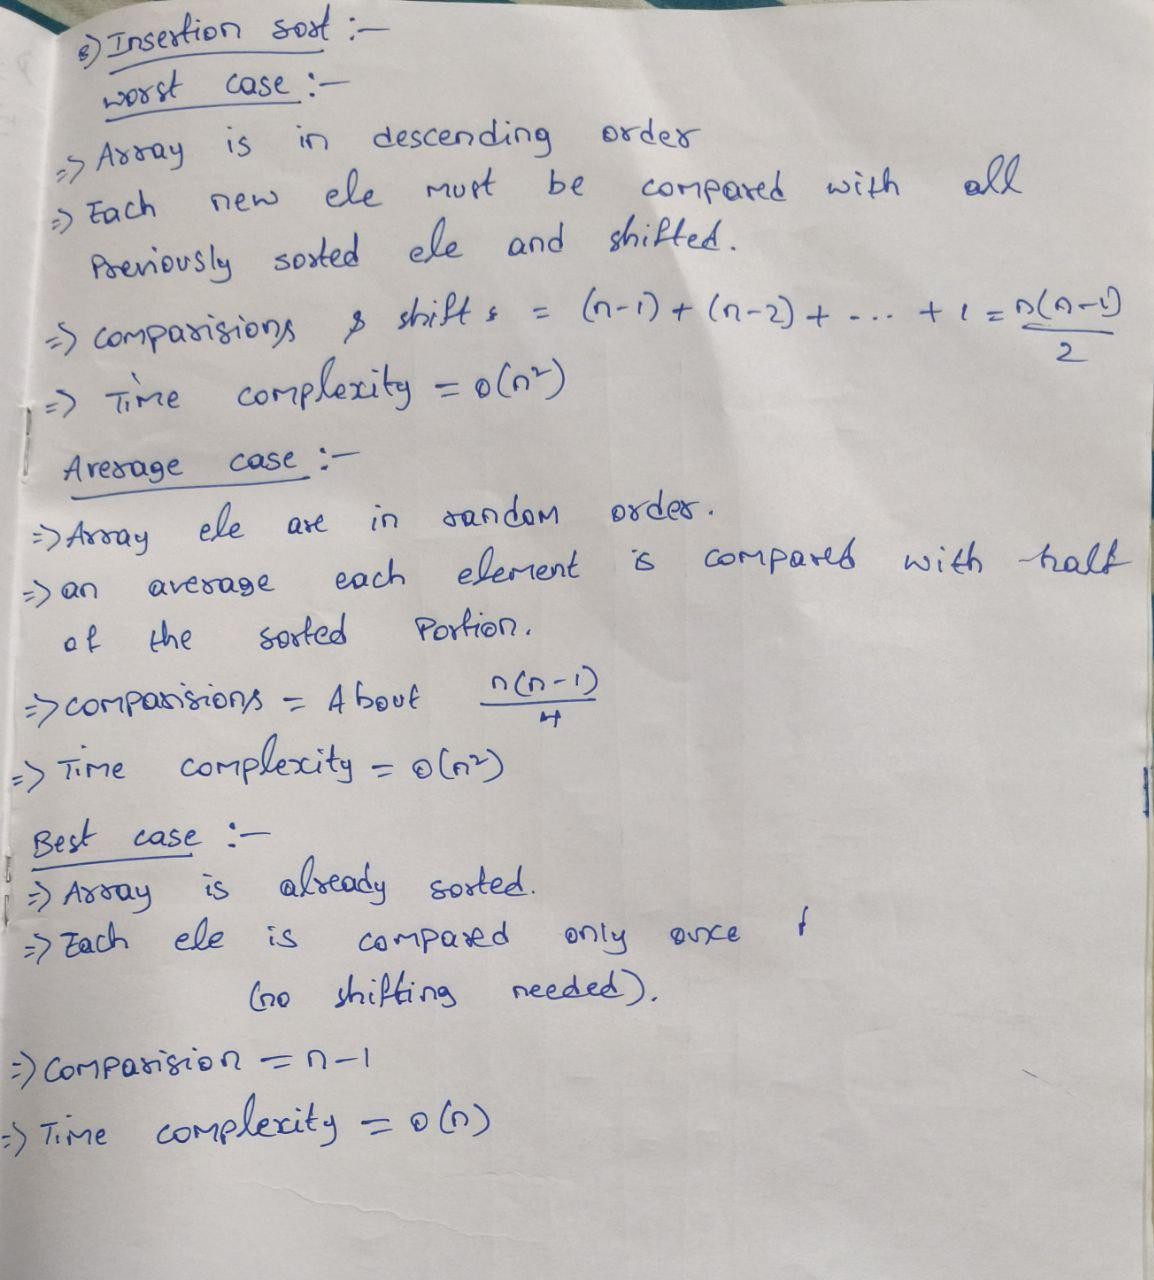 8) Insertion sort :-
worst case :-
=> Array is in descending order
=> Each new ele must be compared with all
Previously sorted ele and shifted.
=> comparisions & shifts = (n-1) + (n-2) + ... + 1 = n(n-1)/2
=> Time complexity = O(n²)
Average case :-
=> Array ele are in random order.
=> an average each element is compared with half
of the sorted Portion.
=> comparisions = About n(n-1)/4
=> Time complexity = O(n²)
Best case :-
=> Array is already sorted.
=> Each ele is compared only once
(no shifting needed).
=> Comparision = n-1
=> Time complexity = O(n)